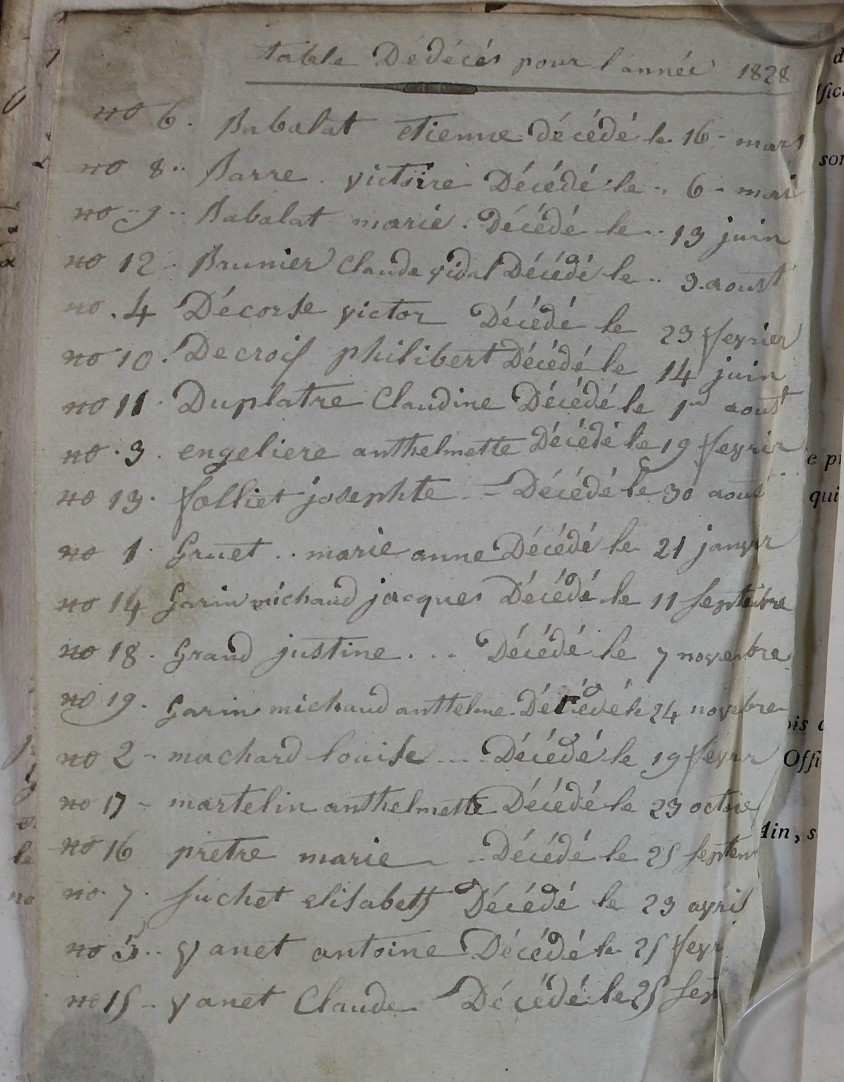 table Dédécés pour l'année 1828
no 6. Babalat etienne décédé le 16 mars
no 8.. Barre . victoire Décédé le .. 6 - mai
no 9.. Babalat marie . Décédé le .. 13 juin
no 12 . Brunier Claude vidal Décédé le .. 3 . aoust
no . 4 Décorse victor Décédé le 23 fevrier
no 10 . Decrois philibert Décédé le 14 juin
no 11 . Duplatre Claudine Décédé le 1er aout
no . 3 . engeliere anthelmette Décédé le 19 fevrir
no 13 . folliet josephte .. - Décédé le 30 aout
no 1 . Gruet . . marie anne Décédé le 21 janvr
no 14 Garin michaud jacques Décédé le 11 Septembre
no 18 . Grand justine . . . Décédé le 7 novembre
no 19 . Garin michaud anthelme . Décédé le 24 novebre
no 2 - machard louise . . . . Décédé le 19 fevrr
no 17 - martelin anthelmette Décédé le 23 octre
no 16 pretre marie - . . Décédé le 25 Septem
no . 7 . Suchet elisabeth Décédé le 23 avril
no 5 . . vanet antoine Décédé le 25 fevr
no 15 - vanet Claude - Décédé le 25 Sep